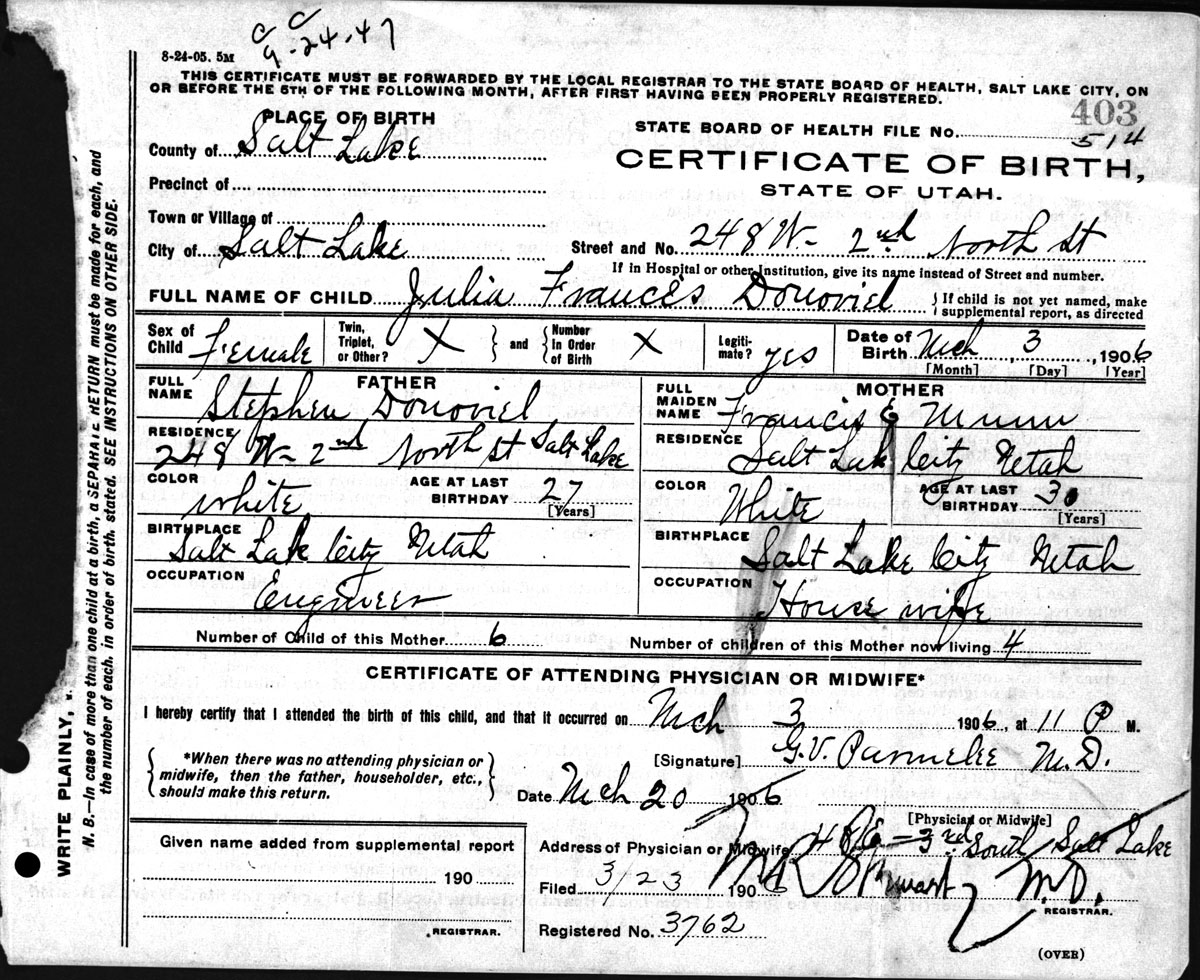 C C
9-24-47
8-24-05. 5M
THIS CERTIFICATE MUST BE FORWARDED BY THE LOCAL REGISTRAR TO THE STATE BOARD OF HEALTH, SALT LAKE CITY, ON
OR BEFORE THE 5TH OF THE FOLLOWING MONTH, AFTER FIRST HAVING BEEN PROPERLY REGISTERED.
403
PLACE OF BIRTH
STATE BOARD OF HEALTH FILE No. 514
County of Salt Lake
CERTIFICATE OF BIRTH,
Precinct of
STATE OF UTAH.
Town or Village of
City of Salt Lake Street and No. 248 W- 2nd North St
If in Hospital or other Institution, give its name instead of Street and number.
FULL NAME OF CHILD Julia Frances Donoviel } If child is not yet named, make supplemental report, as directed
Sex of Child Female Twin, Triplet, or Other? X } and { Number In Order of Birth X Legiti-mate? yes Date of Birth Mch 3, 1906
[Month] [Day] [Year]
FATHER MOTHER
FULL NAME Stephen Donoviel FULL MAIDEN NAME Francis E Munn
RESIDENCE 248 W- 2nd North St Salt Lake RESIDENCE Salt Lak City Utah
COLOR White AGE AT LAST BIRTHDAY 27 [Years] COLOR White AGE AT LAST BIRTHDAY 30 [Years]
BIRTHPLACE Salt Lak City Utah BIRTHPLACE Salt Lake City Utah
OCCUPATION Engineer OCCUPATION House wife
Number of Child of this Mother 6 Number of children of this Mother now living 4
CERTIFICATE OF ATTENDING PHYSICIAN OR MIDWIFE*
I hereby certify that I attended the birth of this child, and that it occurred on Mch 3 1906, at 11 P M.
{ *When there was no attending physician or midwife, then the father, householder, etc., should make this return. }
[Signature] G.V. Parmelee M.D.
Date Mch 20 1906
[Physician or Midwife]
Given name added from supplemental report
Address of Physician or Midwife 3rd South Salt Lake
190
Filed 3/23 1906 M.D.
REGISTRAR.
REGISTRAR.
Registered No. 3762
(OVER)
WRITE PLAINLY,
N. B.—In case of more than one child at a birth, a SEPARATE RETURN must be made for each, and
the number of each, in order of birth, stated. SEE INSTRUCTIONS ON OTHER SIDE.